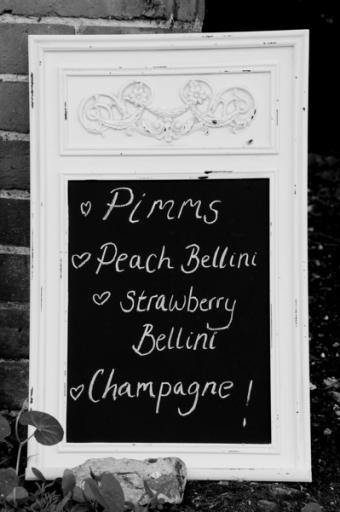 ♡ Pimms
♡ Peach Bellini
♡ Strawberry
Bellini
♡ Champagne !